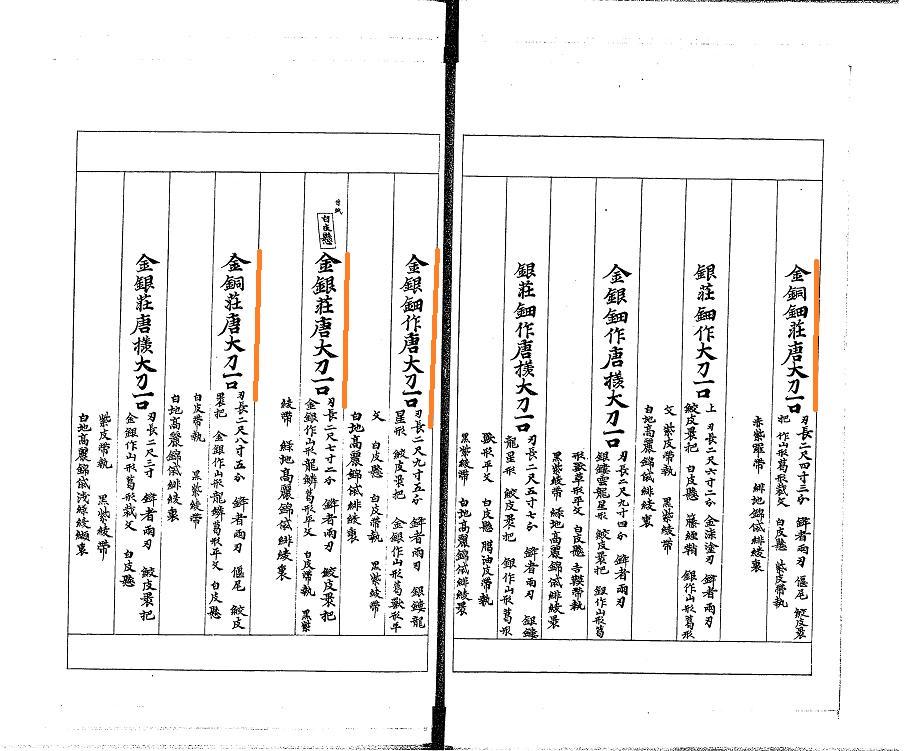 金銅鈿荘唐大刀一口
刃長二尺四寸三分 鋒者兩刃 偃尾 鮫皮褁
把 作山形葛形裁文 白皮懸 紫皮帶執
赤紫羅帶 緋地錦袋緋綾裏
銀荘鈿作大刀一口
上 刃長二尺六寸二分 金漆塗刃 鋒者兩刃
鮫皮褁把 白皮懸 藤纏鞘 銀作山形葛形
文 紫皮帶執 黒紫綾帶
白地高麗錦袋緋綾裏
金銀鈿作唐様大刀一口
刃長二尺九寸四分 鋒者兩刃
銀鏤雲龍星形 鮫皮褁把 銀作山形葛
形獸草形平文 白皮懸 帶執
黒紫綾帶 緑地高麗錦袋緋綾裏
銀荘鈿作唐様大刀一口
刃長二尺五寸七分 鋒者兩刃 銀鏤
龍星形 鮫皮褁把 銀作山形葛形
獸形平文 白皮懸 油皮帶執
黒紫綾帶 白地高麗錦袋緋綾裏
金銀鈿作唐大刀一口
刃長二尺九寸五分 鋒者兩刃 銀鏤龍
星形 鮫皮褁把 金銀作山形葛獸形平
文 白皮懸 白皮帶執 黒紫綾帶
白地高麗錦袋緋綾裏
白皮懸
金銀荘唐大刀一口
刃長二尺七寸二分 鋒者兩刃 鮫皮褁把
金銀作山形龍鱗葛形平文 白皮帶執 黒紫
綾帶 緑地高麗錦袋緋綾裏
金銅荘唐大刀一口
刃長二尺八寸五分 鋒者兩刃 偃尾 鮫皮
褁把 金銀作山形龍鱗葛形平文 白皮懸
白皮帶執 黒紫綾帶
白地高麗錦袋緋綾裏
金銀荘唐様大刀一口
刃長二尺三寸 鋒者兩刃 鮫皮褁把
金銀作山形葛形裁文 白皮懸
紫皮帶執 黒紫綾帶
白地高麗錦袋浅緑綾纈裏